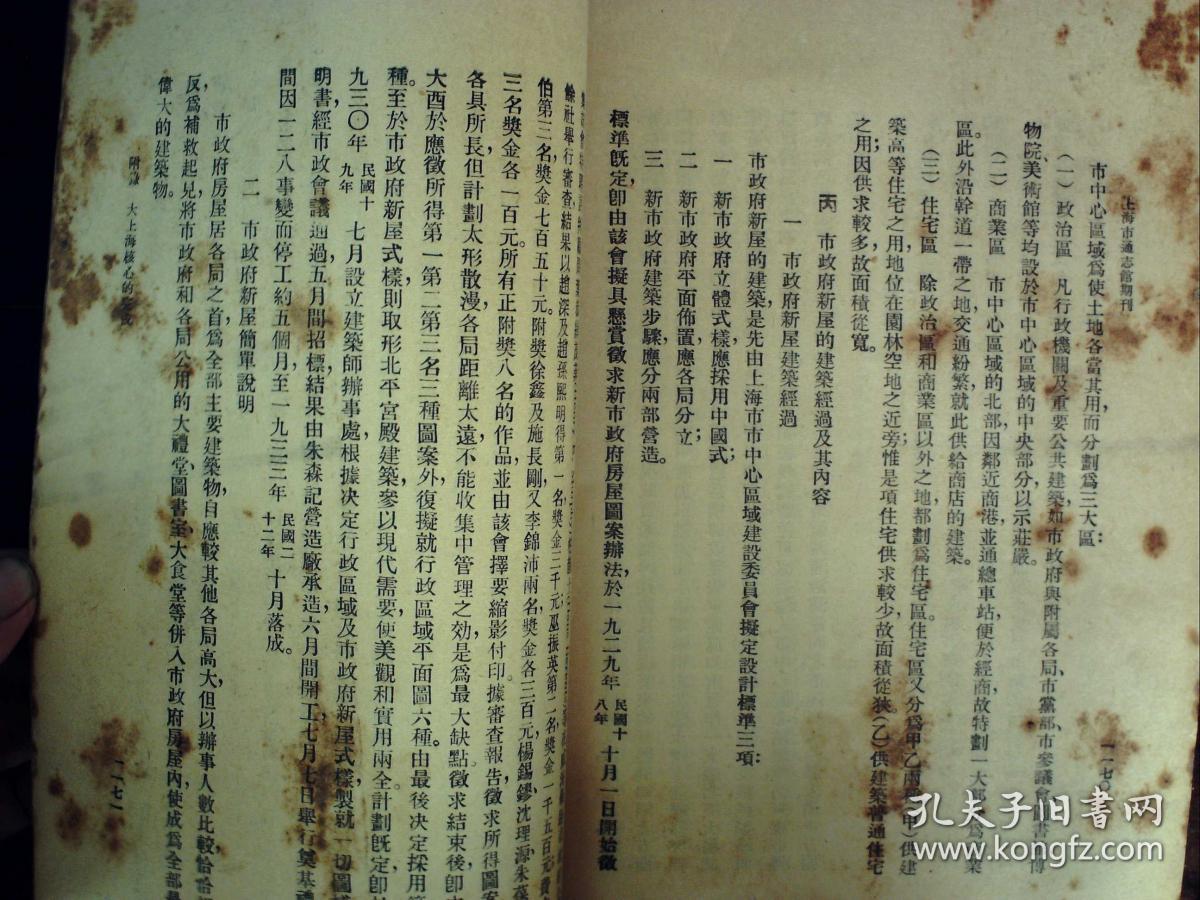 上海市通志館期刊
一一七〇
市中心區域爲使土地各當其用而分劃爲三大區：
（一）政治區　凡行政機關及重要公共建築如市政府與附屬各局、市黨部、市參議會、圖書
物院、美術館等均設於市中心區域的中央部分以示莊嚴。
（二）商業區　市中心區域的北部因鄰近商港，並通總車站，便於經商，故特劃一大部爲
業
區。此外沿幹道一帶之地，交通紛繁，就此供給商店的建築。
（三）住宅區　除政治區和商業區以外之地都劃爲住宅區。住宅區又分爲甲乙兩
甲）供建
築高等住宅之用，地位在園林空地之近旁，惟是項住宅供求較少，故面積從狹；（乙）供建築普通住宅
之用，因供求較多，故面積從寬。
丙　市政府新屋的建築經過及其內容
一　市政府新屋建築經過
市政府新屋的建築，是先由上海市市中心區域建設委員會擬定設計標準三項：
一　新市政府立體式樣應採用中國式；
二　新市政府平面佈置應各局分立；
三　新市政府建築步驟，應分兩部營造。
標準既定，卽由該會擬具懸賞徵求新市政府房屋圖案辦法，於一九二九年民國十八年十月一日開始徵
餘社舉行審查，結果以趙深及趙孫熙明得第一名，獎金三千元；巫振英第二名，獎金一千五百元；費
伯第三名，獎金七百五十元。附獎徐鑫及施長剛，又李錦沛兩名，獎金各三百元，楊錫鏐、沈理源、朱葆
三名獎金各一百元。所有正附獎八名的作品，並由該會擇要縮影付印。據審查報告，徵求所得圖案
各具所長，但計劃太形散漫，各局距離太遠，不能收集中管理之効，是爲最大缺點。徵求結束後，卽
大酉於應徵所得第一第二第三名三種圖案外，復擬就行政區域平面圖六種。由最後決定採用第
種。至於市政府新屋式樣，則取形北平宮殿建築，參以現代需要，使美觀和實用兩全。計劃既定，卽於
九三〇年民國十九年七月設立建築師辦事處，根據決定行政區域及市政府新屋式樣，製就一切圖
明書，經市政會議通過，五月間招標，結果由朱森記營造廠承造，六月間開工，七月七日舉行奠基禮
間因一二八事變而停工約五個月，至一九三三年民國二十二年十月落成。
二　市政府新屋簡單說明
市政府房屋居各局之首，爲全部主要建築物，自應較其他各局高大，但以辦事人數比較，恰恰
反，爲補救起見，將市政府和各局公用的大禮堂、圖書室、大食堂等併入市政府房屋內，使成爲全部最
偉大的建築物。
附錄　大上海核心的
成
一一七一
孔夫子旧书网
www.kongfz.com